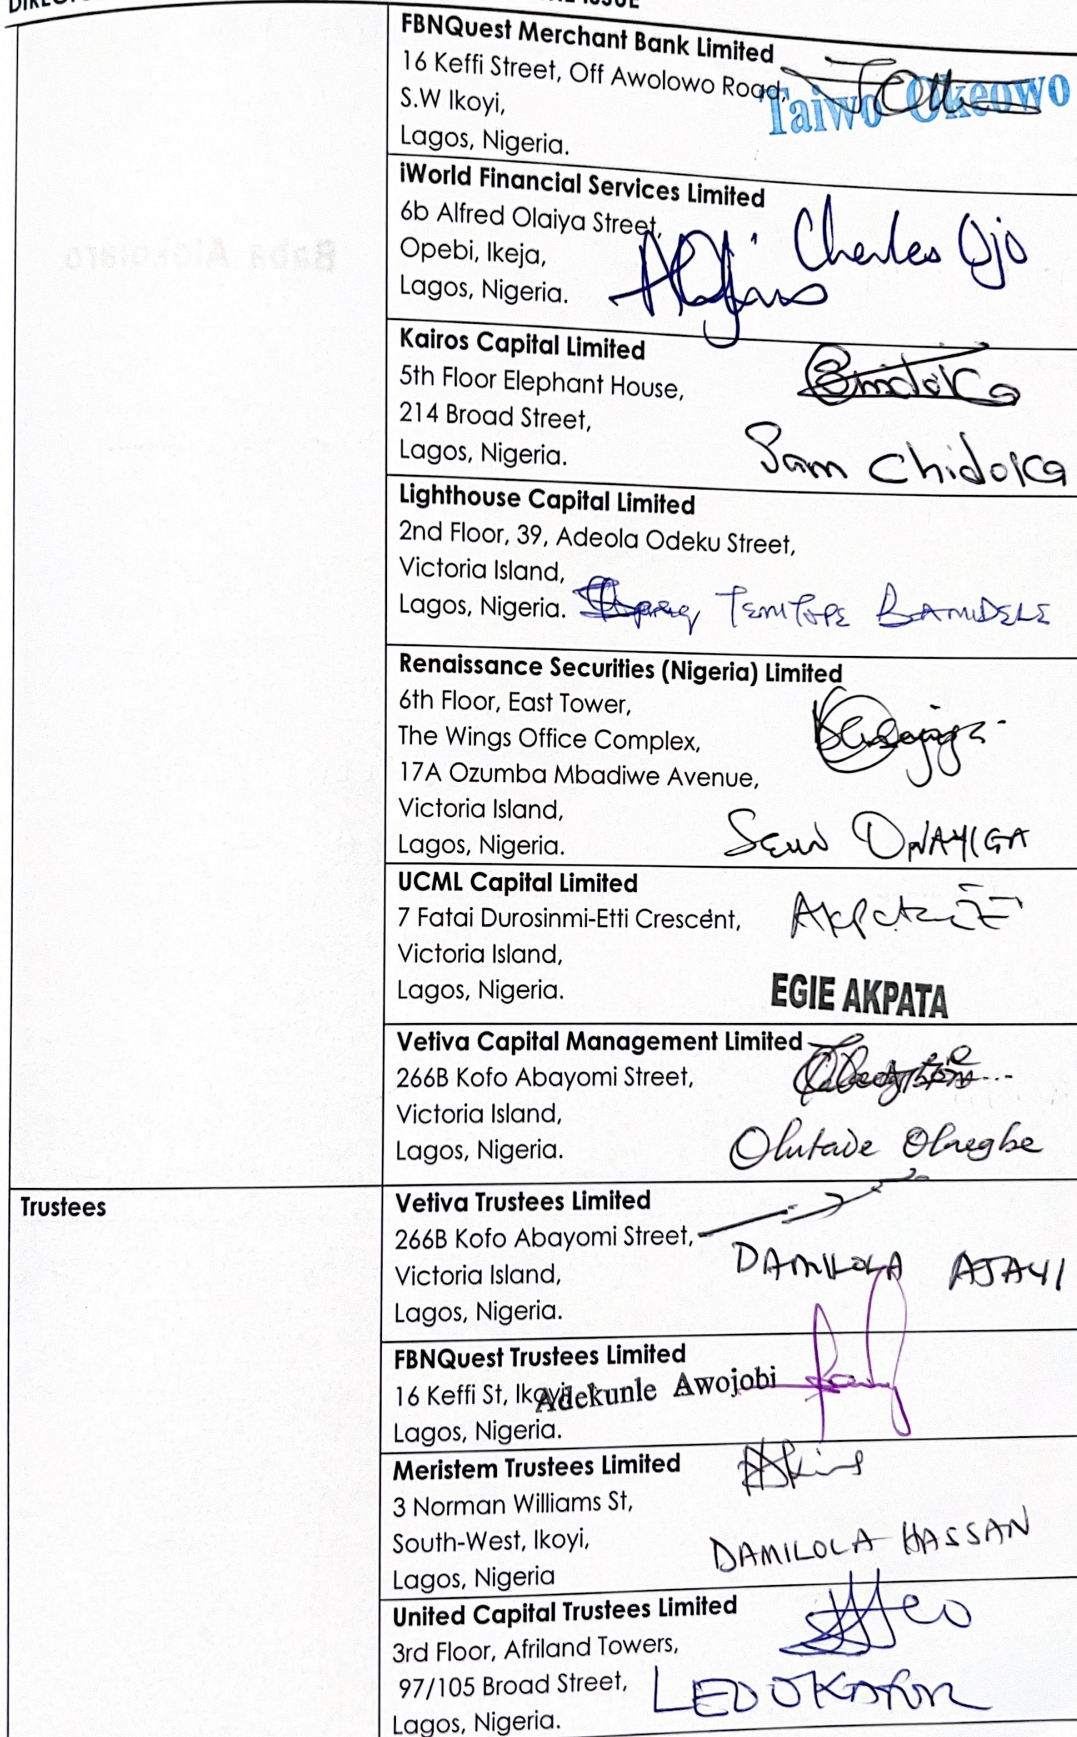 ISSUE
FBNQuest Merchant Bank Limited
16 Keffi Street, Off Awolowo Road,
S.W Ikoyi,
Lagos, Nigeria.
Taiwo Okeowo
iWorld Financial Services Limited
6b Alfred Olaiya Street,
Opebi, Ikeja,
Lagos, Nigeria.
Charles Ojo
Kairos Capital Limited
5th Floor Elephant House,
214 Broad Street,
Lagos, Nigeria.
Sam Chidoka
Lighthouse Capital Limited
2nd Floor, 39, Adeola Odeku Street,
Victoria Island,
Lagos, Nigeria.
TEMITOPE BAMIDELE
Renaissance Securities (Nigeria) Limited
6th Floor, East Tower,
The Wings Office Complex,
17A Ozumba Mbadiwe Avenue,
Victoria Island,
Lagos, Nigeria.
SEUN ONAYIGA
UCML Capital Limited
7 Fatai Durosinmi-Etti Crescent,
Victoria Island,
Lagos, Nigeria.
EGIE AKPATA
Vetiva Capital Management Limited
266B Kofo Abayomi Street,
Victoria Island,
Lagos, Nigeria.
Olutade Olaegbe
Trustees
Vetiva Trustees Limited
266B Kofo Abayomi Street,
Victoria Island,
Lagos, Nigeria.
DAMILOLA AJAYI
FBNQuest Trustees Limited
16 Keffi St, Ikoyi,
Adekunle Awojobi
Lagos, Nigeria.
Meristem Trustees Limited
3 Norman Williams St,
South-West, Ikoyi,
Lagos, Nigeria
DAMILOLA HASSAN
United Capital Trustees Limited
3rd Floor, Afriland Towers,
97/105 Broad Street,
Lagos, Nigeria.
LEO OKAFOR